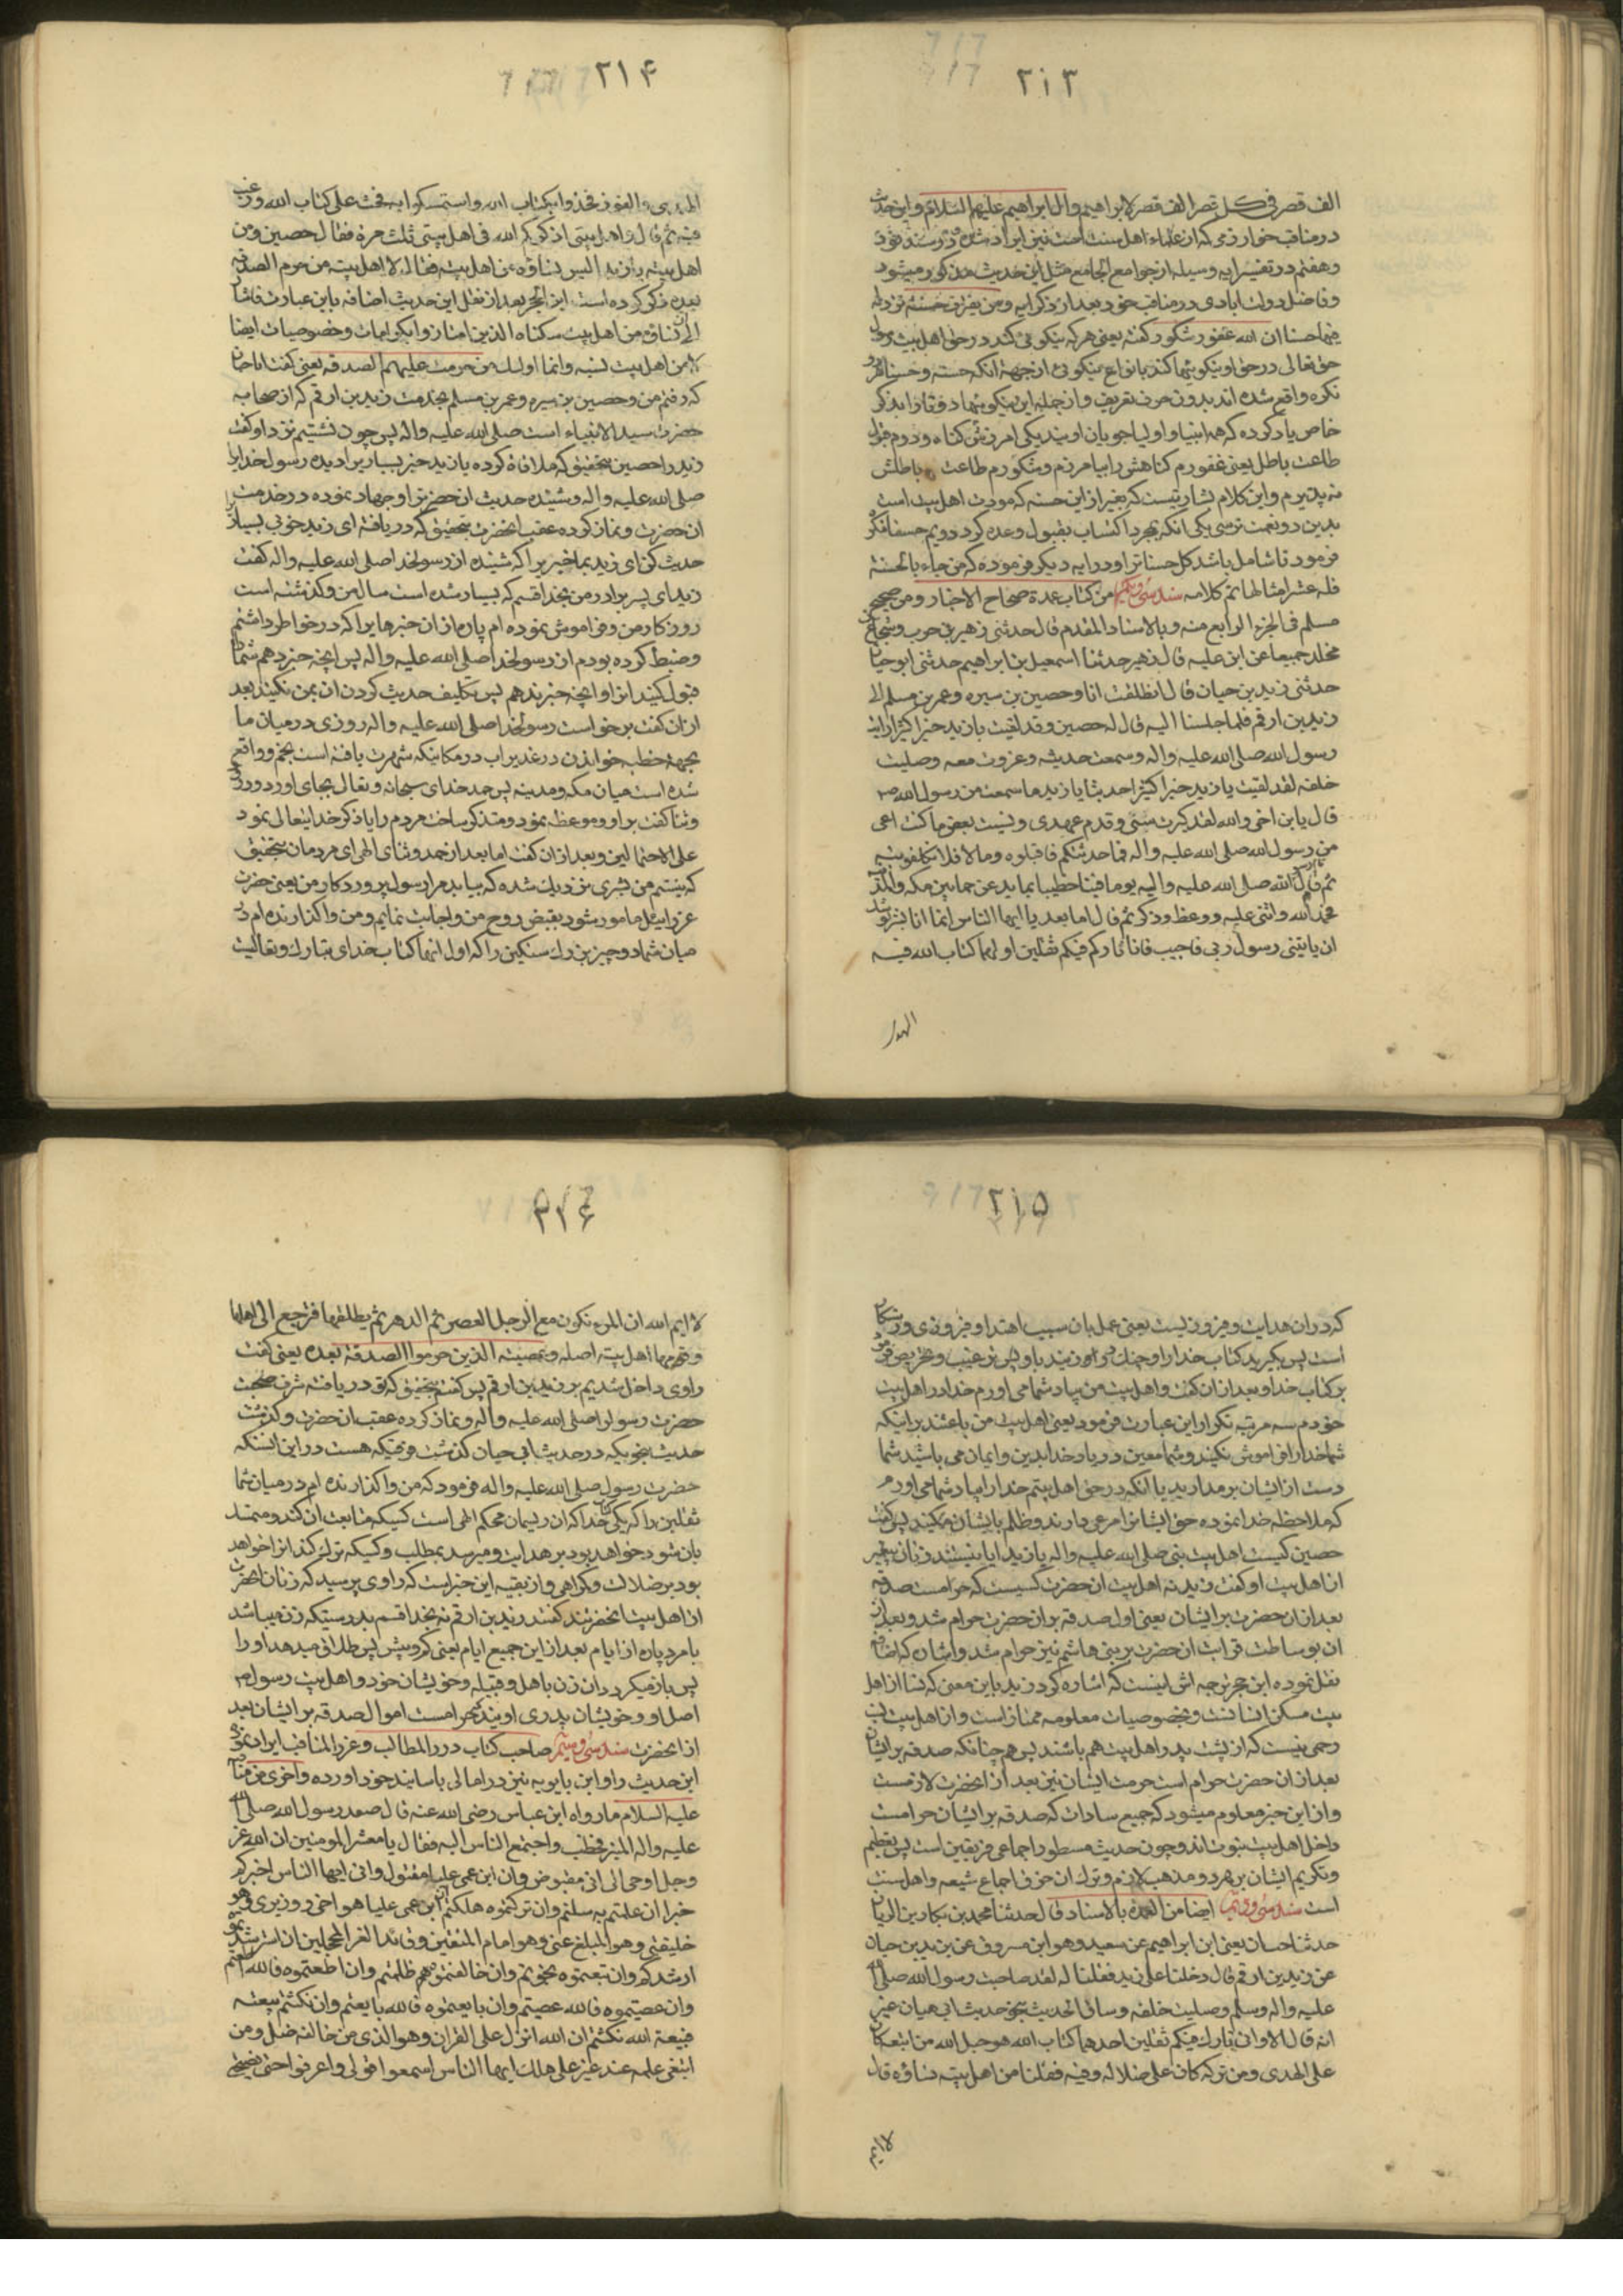 ٢١٣
الف قصر فی کل قصر الف قصر لابراهیم وال ابراهیم علیهم السلام و این حدیث
در مناقب خوارزمی که از علماء اهل سنت است نیز ایراد شده
وهفتم در تفسیر ایه وسیله از جوامع الجامع مثل این حدیث مذکور میشود
وفاضل دولت ابادی در مناقب خود بعد از ذکر ایه ومن یقترف حسنة نزد له
فیها حسنا ان الله غفور شکور گفته یعنی هر که نیکوئی کند در حق اهل بیت رسول
حق تعالی در حق او نیکوئیها کند بانواع نیکوئی از جهة انکه حسنه وحسنا هر دو
نکره واقع شده اند بدون حرف تعریف واز جمله این نیکوئیها دو تا را بذکر
خاص یاد کرده که همه انبیا و اولیا جویان اویند یکی امرزش کناه ودوم قبول
طاعت باطل یعنی غفورم کناهش را بیامرزم وشکورم طاعت باطلش
بپذیرم واین کلام بشارتیست که بغیر از این حسنه که مودت اهل بیت است
بدین دو نعمت نرسی یکی انکه بمجرد اکتساب بقبول وعده کرد دویم حسنا نکره
فرمود تا شامل باشد کل حسناترا ودر ایه دیکر فرموده که من جاء بالحسنة
فله عشر امثالها تم کلامه سند سی ویکم من کتاب عمدة صحاح الاخبار ومن صحیح
مسلم فی الجزء الرابع منه وبالاسناد المقدم قال حدثنی زهیر بن حرب وشجاع بن
مخلد جمیعا عن ابن علیه قال زهیر حدثنا اسمعیل بن ابراهیم حدثنی ابو حیان
حدثنی زید بن حیان قال انطلقت انا وحصین بن سبره وعمر بن مسلم الی
زید بن ارقم فلما جلسنا الیه قال له حصین وقد لقیت یا زید خیرا کثیرا رایت
رسول الله صلی الله علیه واله وسمعت حدیثه وغزوت معه وصلیت
خلفه لقد لقیت یا زید خیرا کثیرا حدثنا یا زید ما سمعت من رسول الله ص
قال یابن اخی والله لقد کبرت سنی وقدم عهدی ونسیت بعض ما کنت اعی
من رسول الله صلی الله علیه واله فما حدثتکم فاقبلوه وما لا فلا تکلفونیه
ثم قال رسول الله صلی الله علیه واله یوما فینا خطیبا بماء یدعی خما بین مکه والمدینه
فحمد الله واثنی علیه ووعظ وذکر ثم قال اما بعد یا ایها الناس انما انا بشر یوشک
ان یاتینی رسول ربی فاجیب فانا تارک فیکم ثقلین اولهما کتاب الله فیه
الهدی
٢١۴
الهدی والنور فخذوا بکتاب الله واستمسکوا به فحث علی کتاب الله ورغب
فیه ثم قال واهل بیتی اذکرکم الله فی اهل بیتی ثلث مرة فقال حصین ومن
اهل بیته یا زید الیس نساؤه من اهل بیته فقال لا اهل بیته من حرم الصدقه
بعده ذکر کرده است ابن الحجر بعد از نقل این حدیث اضافه باین عبارت فاشار
الی ان نساؤه من اهل بیت سکناه الذین امتازوا بکرامات وخصوصیات ایضا
لا من اهل بیت نسبه وانما اولئک من حرمت علیهم الصدقه یعنی گفت ابا حیان
که رفتم من وحصین بن سبره وعمر بن مسلم بخدمت زید بن ارقم که از صحابه
حضرت سید الانبیاء است صلی الله علیه واله پس چون نشستیم نزد او گفت
زید را حصین بتحقیق که ملاقاة کرده یا زید خیر بسیار یرا دیده رسول خدایرا
صلی الله علیه واله وشنیده حدیث انحضرتراو جهاد نموده در خدمت
ان حضرت ونماز کرده عقب انحضرت بتحقیق که دریافته ای زید خوبی بسیار را
حدیث کن ای زید بما خبریرا که شنیده از رسولخدا صلی الله علیه واله گفت
زید ای پسر برادر من بخدا قسم که بسیار شده است سال من وگذشته است
روزکار من وفراموش نموده ام پاره از ان خبرها یرا که در خواطر داشتم
وضبط کرده بودم از رسولخدا صلی الله علیه واله پس انچه خبر دهم شما را
قبول کنید انرا وانچه خبر ندهم پس تکلیف حدیث کردن ان بمن نکنید بعد
از ان گفت برخواست رسولخدا صلی الله علیه واله روزی در میان ما
بجهة خطبه خواندن در غدیر اب در مکانیکه شهرت یافته است بخم وواقع
شده است میان مکه ومدینه پس حمد خدای سبحانه وتعالی بجای اورد ودرود
وثنا گفت براو وموعظه نمود ومتذکر ساخت مردم را یا ذکر خدایتعالی نمود
علی الاحتمالین وبعد از ان گفت اما بعد از حمد وثنای الهی ای مردمان بتحقیق
که نیستم من بشری نزدیک شده که بیاید مرا رسول پروردکار من یعنی حضرت
عزرائیل مامور شود بقبض روح من واجابت نمایم ومن واگذارنده ام در
میان شما دو چیز بزرک سنکین را که اول انها کتاب خدای تبارک وتعالیست
٢١۵
که در ان هدایت و فیروزیست یعنی عمل بان سبب اهتدا و فیروزی ورستکاری
است پس بگیرید کتاب خدا را وچنک در او زنید باو پس ترغیب وتحریص فرمود
بر کتاب خدا وبعد از ان گفت واهل بیت من بیاد شما می اورم خدا در اهل بیت
خودم سه مرتبه تکرار این عبارت فرمود یعنی اهل بیت من باعثند بر اینکه
شما خدا را فراموش نکنید و شما معین در یاد خدا بدین وایمان می باشید شما
دست از ایشان بر مدارید یا انکه در حق اهل بیتم خدا را بیاد شما می اورم
که ملاحظه خدا نموده حق ایشانرا مرعی دارند وظلم بایشان مکنید پس گفت
حصین کیست اهل بیت نبی صلی الله علیه واله یا زید ایا نیستند زنان پیغمبر
از اهل بیت او گفت زید نه اهل بیت ان حضرت کسیست که حرامست صدقه
بعد از ان حضرت بر ایشان یعنی اول صدقه بران حضرت حرام شد وبعد از
ان بوساطت قرابت ان حضرت بر بنی هاشم نیز حرام شد واشاره که اضافه
نقل نموده ابن حجر ترجمه اش اینست که اشاره کرد زید باین معنی که نسا از اهل
بیت مسکن انسانست وبخصوصیات معلومه ممتاز است واز اهل بیت نسب
رحمی نیست که از پشت پدر اهل بیت هم باشند پس هم چنانکه صدقه بر ایشان
بعد از ان حضرت حرام است حرمت ایشان نیز بعد از انحضرت لازمست
واز این خبر معلوم میشود که جمیع سادات که صدقه بر ایشان حرامست
داخل اهل بیت نبوت اند وچون حدیث مسطور اجماعی فریقین است پس تعظیم
وتکریم ایشان بر هر دو مذهب لازم وترک ان خرق اجماع شیعه واهل سنت
است سند سی ودویم ایضا من العمدة بالاسناد قال حدثنا محمد بن بکار بن الریان
حدثنا حسان یعنی ابن ابراهیم عن سعید وهو ابن مسروق عن یزید بن حیان
عن زید بن ارقم قال دخلنا علی زید فقلنا له لقد صاحبت رسول الله صلی الله
علیه واله وسلم وصلیت خلفه وساق الحدیث بنحو حدیث ابی حیان غیر
انه قال الا وانی تارک فیکم ثقلین احدهما کتاب الله هو حبل الله من اتبعه کان
علی الهدی ومن ترکه کان علی ضلالة وفیه فقلنا من اهل بیته نساؤه قال
لا ایم
٢١۶
لا ایم الله ان المراة تکون مع الرجل العصر ثم الدهر ثم یطلقها فترجع الی اهلها
وقومها اهل بیته اصله وعصبته الذین حرموا الصدقة بعده یعنی گفت
راوی داخل شدیم بر زید بن ارقم پس گفتم بتحقیق که تو دریافته شرف صحبت
حضرت رسولرا صلی الله علیه واله ونماز کرده عقب ان حضرت وگذشت
حدیث بنحویکه در حدیث ابی حیان گذشت وفرقیکه هست در این انستکه
حضرت رسول صلی الله علیه واله فرمود که من واگذارنده ام در میان شما
ثقلین را که یکی کتاب خدا که ان ریسمان محکم الهی است کسیکه متابعت ان کند ومتمسک
بان شود خواهد بود بر هدایت ومیرسد بمطلب وکسیکه ترک کند انرا خواهد
بود بر ضلالت وکمراهی واز بقیه این خبر است که راوی پرسید که زنان انحضرت
از اهل بیت انحضرتند گفتند زید بن ارقم نه بخدا قسم بدرستیکه زن میباشد
با مرد پاره از ایام بعد از این جمیع ایام یعنی کرو پیش پس طلاق میدهد او را
پس باز میکردد ان زن باهل وقبیله وخویشان خود واهل بیت رسول ص
اصل او وخویشان پدری اویند که حرامست اموال صدقه بر ایشان بعد
از انحضرت سند سی وسیم صاحب کتاب درر المطالب وغرر المناقب ایراد نموده
این حدیث را وابن بابویه نیز در امالی باسانید خود اورده واخری من مناقبه
علیه السلام ما رواه ابن عباس رضی الله عنه قال صعد رسول الله صلی الله
علیه واله المنبر فخطب واجتمع الناس الیه فقال یا معشر المومنین ان الله عز
وجل اوحی الی انی مقبوض وان ابن عمی علیا مقتول وانی ایها الناس اخبرکم
خبرا ان علمتم به سلمتم وان ترکتموه هلکتم ان ابن عمی علیا هو اخی ووزیری وهو
خلیفتی وهو المبلغ عنی وهو امام المتقین وقائد الغر المحجلین ان استرشدتموه
ارشدکم وان تبعتموه نجوتم وان خالفتموه ظللتم وان اطعتموه فالله اطعتم
وان عصیتموه فالله عصیتم وان بایعتموه فالله بایعتم وان نکثتم بیعته
فبیعة الله نکثتم ان الله انزل علی القران وهو الذی من خالفه ضل ومن
ابتغی علمه عند غیر علی هلک ایها الناس اسمعوا قولی واعرفوا حق نصیحتی